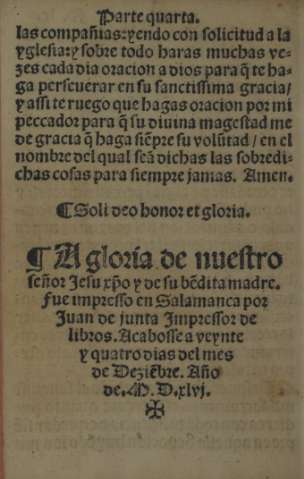 Parte quarta.
las compañias: yendo con solicitud a la
yglesia: y sobre todo haras muchas ve-
zes cada dia oracion a dios para q̃ te ha-
ga perseuerar en su sanctissima gracia/
y assi te ruego que hagas oracion por mi
peccador para q̃ su diuina magestad me
de gracia q̃ haga siẽpre su volũtad / en el
nombre del qual seã dichas las sobredi-
chas cosas para siempre jamas. Amen.
¶ Soli deo honor et gloria.
¶ A gloria de nuestro
señor Jesu xp̃o y de su bẽdita madre.
Fue impresso en Salamanca por
Juan de junta Impressor de
libros. Acabosse a veynte
y quatro dias del mes
de Deziẽbre. Año
de. M. D. xlvj.
✠